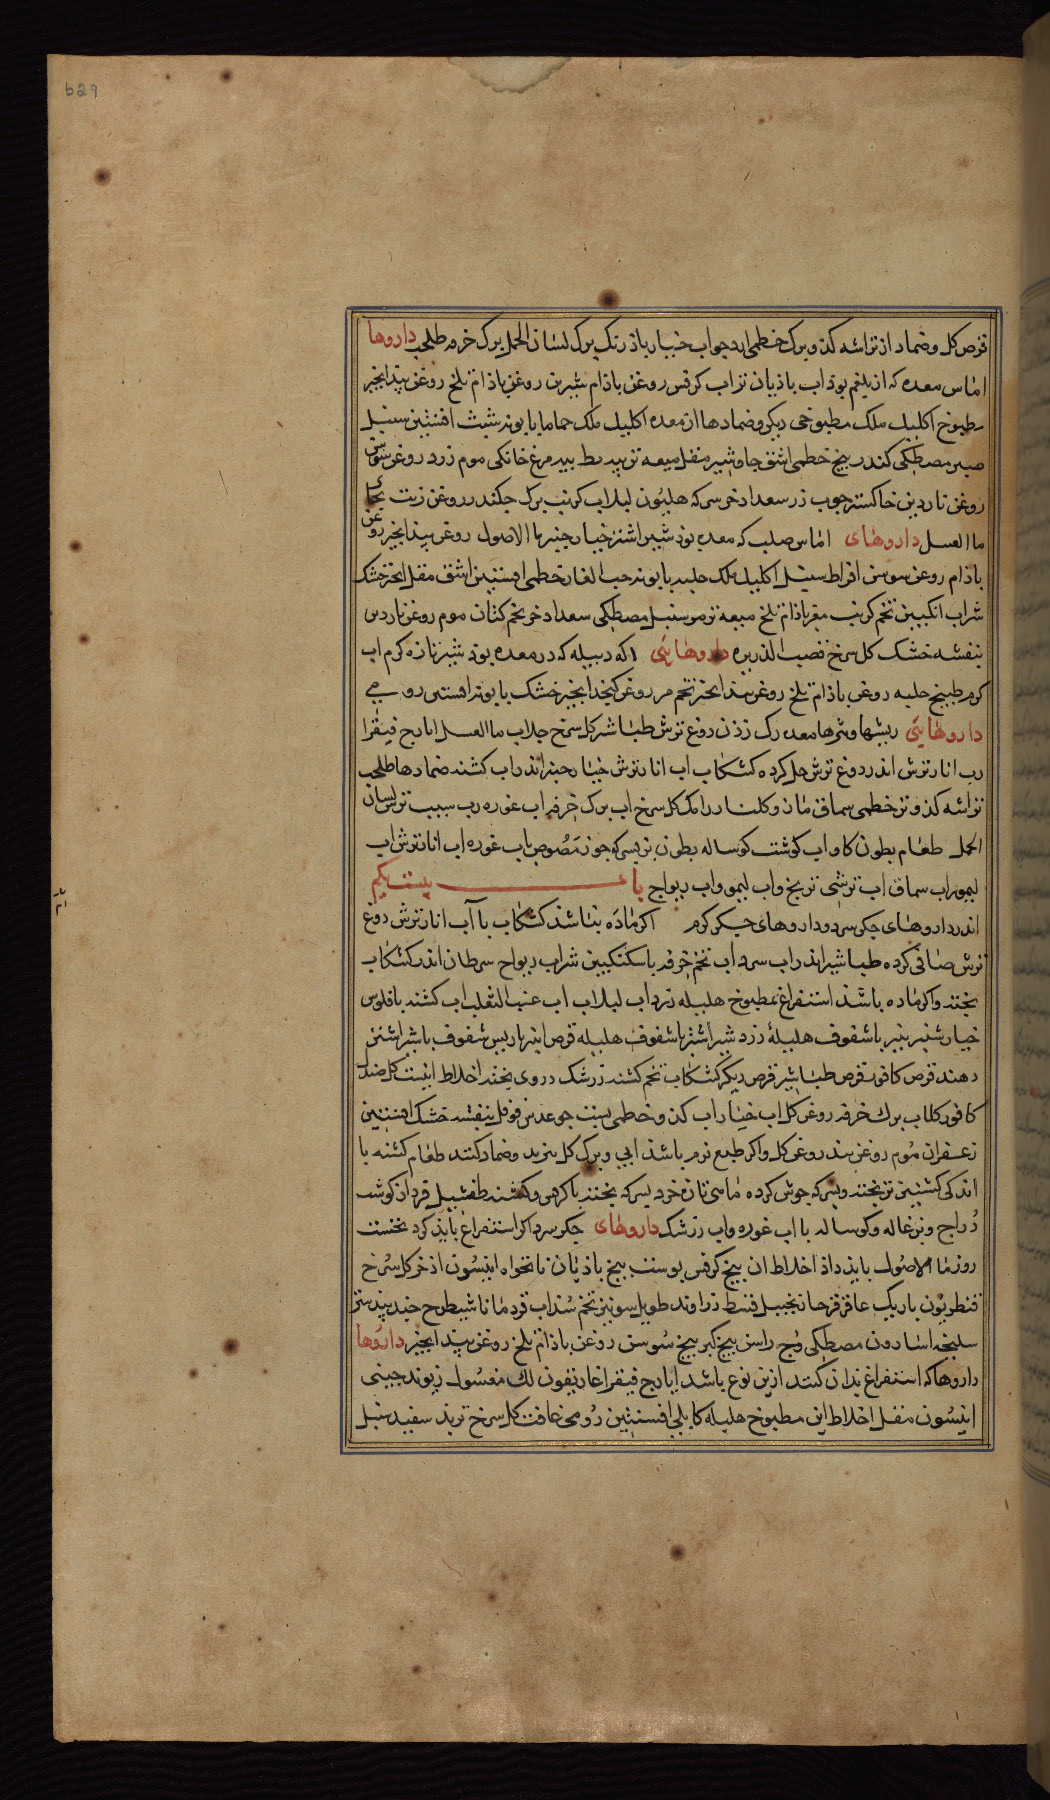 629
قرص کل وضماد از تراشه کدو وبرک خطمی ارد جواب خیار باذرنک برک لسان الحمل برک خرفه طحلب داروها
اماس معده که از بلغم بوذ اب باذیان تر اب کرفس روغن باذام شیرین روغن باذام تلخ روغن بیدانجیر
مطبوخ اکلیل ملک مطبوخی دیکر وضمادها از معده اکلیل ملک حماما بابونه شبث افسنتین سنبل
صبر مصطکی کندر بیخ خطمی اشق جاوشیر مقل میعه تر پیه بط پیه مرغ خانکی موم زرد روغن سوسن
روغن ناردین خاکستر چوب رز سعد اذخر سرکه هلیون لبلاب کرنب برک چکندر روغن زیت بجای
ما العسل داروهای اماس صلب که معده بوذ شیر اشتر خیار چنبر ما الاصول روغن بیدانجیر روغن
باذام روغن سوسن اقراط سنبل اکلیل ملک حلبه بابونه حب الغار خطمی افسنتین اشق مقل انجیر خشک
شراب انکبین تخم کرنب مغز باذام تلخ میعه ترمس سنبل مصطکی سعد اذخر تخم کتان موم روغن ناردین
بنفشه خشک کل سرخ قصب الذریره داروهایی که دبیله که در معده بوذ شیر تازه کرم اب
کرم طبیخ حلبه روغن باذام تلخ روغن بیدانجیر تخم مر روغن کنجد انجیر خشک بابونه افسنتین رومی
داروهایی ریشها وبثرها معده رک زدن دوغ ترش طباشیر کل سرخ جلاب ما العسل ایارج فیقرا
رب انار ترش اندر دوغ ترش حل کرده کشکاب اب انار ترش خیار چنبر اندر اب کشنه ضمادها طحلب
تراشه کدو تر خطمی سماق مان وکلنار رامک کل سرخ اب برک خرفه اب غوره رب سیب ترش لسان
الحمل طعام بطون کاو اب کوشت کوساله بطون بزیسرکه جون مصوص باب غوره اب انار ترش اب
لیمو اب سماق اب ترشی ترنج واب لیمو واب ریواج باب بیست یکم
اندر داروهای جکر سرد وداروهای جکر کرم اکر ماده نباشذ کشکاب با آب انار ترش دوغ
ترش صافی کرده طباشیر اندر اب سرد اب تخم خرفه با سکنکبین شراب ریواج سرطان اندر کشکاب
بخته واکر ماده باشذ استفراغ بمطبوخ هلیله زرد اب لبلاب اب عنب الثعلب اب کشنه با فلوس
خیار شنبر پنیر با شفوف هلیلهٔ زرد شیر اشتر با شفوف هلیله قرص انبرباریس شفوف با شیر اشتر
دهند قرص کافور قرص طباشیر قرص دیکر کشکاب تخم کشنه زرشک دروی بخته اخلاط اینست کل صندل
کافور کلاب برک خرفه روغن کل اب خیار اب کدو خطمی پست جو عدس فوفل بنفشه خشک افسنتین
زعفران موم روغن بید روغن کل واکر طبع نرم باشذ ابی وبرک کل بزید وضماد کنند طعام کشنه با
اندکی کشنیز تر بخته وبسرکه جوش کرده ماهی تازه خرد بسرکه بخته با کرفس وکشنه طفشیل قردان کوشت
دراج وبزغاله وکوساله با اب غوره واب زرشک داروهای جکر سرد اکر استفراغ بایذ کرد نخست
روز ما الاصول بایذ داذ اخلاط ان بیخ کرفس پوست بیخ باذیان نانخواه انیسون اذخر کل سرخ
قنطریون باریک عاقرقرحا زنجبیل قسط زراوند طویل سونیز تخم سذاب قردمانا شیطرج جند بیدستر
سلیخه اسارون مصطکی وج راسن بیخ کبر بیخ سوسن روغن باذام تلخ روغن بیدانجیر داروها
داروها که استفراغ بذان کنند ازین نوع باشد ایارج فیقرا غاریقون لک مغسول ریوند چینی
انیسون مقل اخلاط این مطبوخ هلیله کابلی افسنتین رومی غافث کل سرخ تربد سفید سنبل